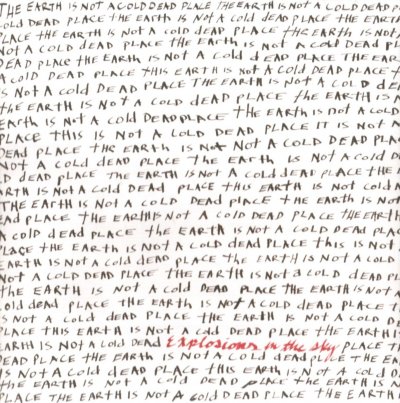 THE EARTH IS NOT A COLD DEAD PLACE THE EARTH IS NOT A COLD DEAD P
OLD DEAD PLACE THE EARTH IS NOT A COLD DEAD PLACE THE EARTH
PLACE THE EARTH IS NOT A COLD DEAD PLACE THE EARTH IS NOT A
NOT A COLD DEAD PLACE THE EARTH IS NOT A COLD DEAD PL
DEAD PLACE THE EARTH IS NOT A COLD DEAD PLACE THE EAR
A COLD DEAD PLACE THIS EARTH IS NOT A COLD DEAD PLACE T
IS NOT A COLD DEAD PLACE THE EARTH IS NOT A COLD DE
THE EARTH IS NOT A COLD DEAD PLACE THE EARTH IS N
EARTH IS NOT A COLD DEAD PLACE THE EARTH IS NOT A COLD
PLACE THIS IS NOT A COLD DEAD PLACE IT IS NOT A
DEAD PLACE THE EARTH IS NOT A COLD DEAD PLA
NOT A COLD DEAD PLACE THE EARTH IS NOT A COLD D
D DEAD PLACE THE EARTH IS NOT A COLD DEAD PLACE THE
ARTH IS NOT A COLD DEAD PLACE THIS EARTH IS NOT COLD A
THE EARTH IS NOT A COLD DEAD PLACE THE EARTH IS NOT
EAD PLACE THE EARTH IS NOT A COLD DEAD PLACE THE EARTH
A COLD DEAD PLACE THE EARTH IS NOT A COLD DEAD PLACE
PLACE THE EARTH IS NOT A COLD DEAD PLACE THIS IS NOT
EARTH IS NOT A COLD DEAD PLACE THE EARTH IS NOT A COLD
NOT A COLD DEAD PLACE THE EARTH IS NOT A COLD DEAD PL
THE EARTH IS NOT A COLD DEAD PLACE THE EARTH IS NOT A
OLD DEAD PLACE THE EARTH IS NOT A COLD DEAD PLACE T
IS NOT A COLD DEAD PLACE THE EARTH IS NOT A COLD D
PLACE THIS EARTH IS NOT A COLD DEAD PLACE THE EARTH I
EARTH IS NOT A COLD DEAD Explosions in the sky PLACE T
DEAD PLACE THE EARTH IS NOT A COLD DEAD PLACE THE EA
IS NOT A COLD DEAD PLACE THIS EARTH IS NOT A COLD D
THE EARTH IS NOT A COLD DEAD PLACE THE EARTH IS N
THE EARTH IS NOT A COLD DEAD PLACE THE EARTH